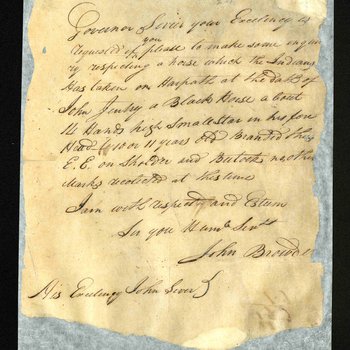 Governor Sevier your Excelency is
requested if you please to make some enquir
y respecting a horse which the Indians
Has taken on Harpath at the
John Jentry a Black Horse about
14 Hands high Small Star in his fore
Head 10 or 11 years old Branded thus
E.E. on Sholder and Buttock no other
Marks recolected at this time
I am with respect and Esteem
Sir you Humb Servt
John Browde
His Excelency John Sever